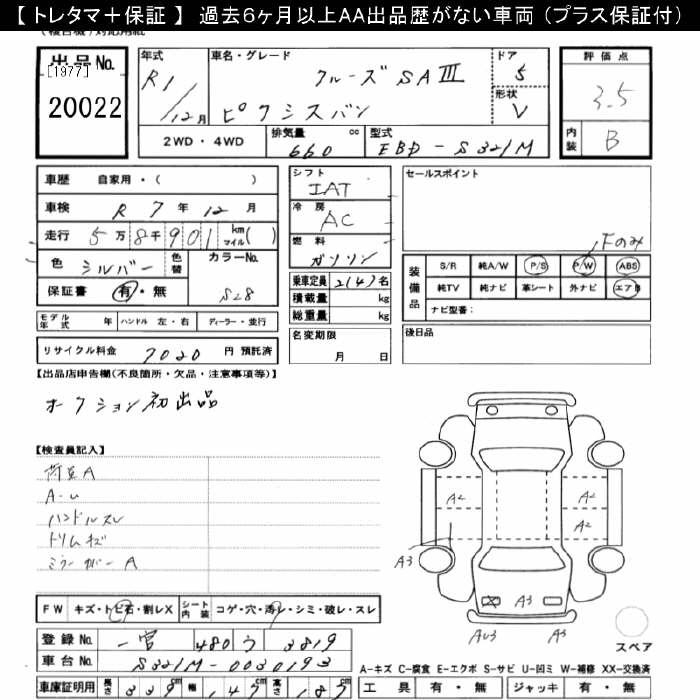 【 トレタマ＋保証 】 過去６ヶ月以上AA出品歴がない車両（プラス保証付）
出品No. [1977] 20022
年式 R1/12月
車名・グレード クルーズ SAⅢ ピクシスバン
ドア 5
形状 V
評価点 3.5
内装 B
2WD・4WD
排気量 660 cc
型式 EBD-S321M
車歴 自家用・( )
車検 R 7年 12月
走行 5万8千901 km マイル( )
色 シルバー 色替 カラーNo. S28
保証書 有・無
モデル年式 年 ハンドル 左・右 ディーラー・並行
リサイクル料金 7020 円 預託済
シフト IAT
冷房 AC
燃料 ガソリン
乗車定員 2(4)名
積載量 kg
総重量 kg
名変期限 月 日
セールスポイント
Fのみ
装備品 S/R 純A/W P/S P/W ABS
純TV 純ナビ 革シート 外ナビ エアB
ナビ型番：
後日品
【出品店申告欄(不良箇所・欠品・注意事項等)】
オークション初出品
【検査員記入】
荷室A
A-U
ハンドルスレ
トリムキズ
ミラーカバーA
A2 A2
A2
A3
A3
AU3 A3
スペア
FW キズ・トビ石・割レX シート内装 コゲ・穴・汚レ・シミ・破レ・スレ
登録No. 一宮 480 う 3819
車台No. S321M-0030193
車庫証明用 長さ 339 幅 147 高さ 187
A-キズ C-腐食 E-エクボ S-サビ U-凹ミ W-補修 XX-交換済
工具 有・無 ジャッキ 有・無